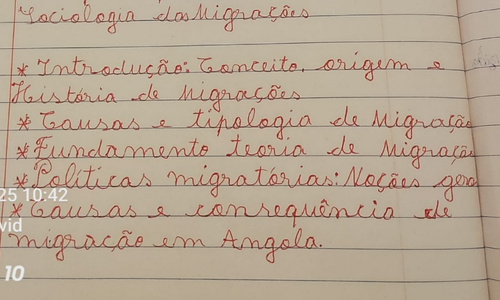 Sociologia das Migrações
* Introdução: Conceito. origem e
História de Migrações
* Causas e tipologia de Migração
* Fundamento teoria de Migração
* Políticas migratórias: Noções gera
25 10:42
* Causas e consequência de
vid
migração em Angola.
10